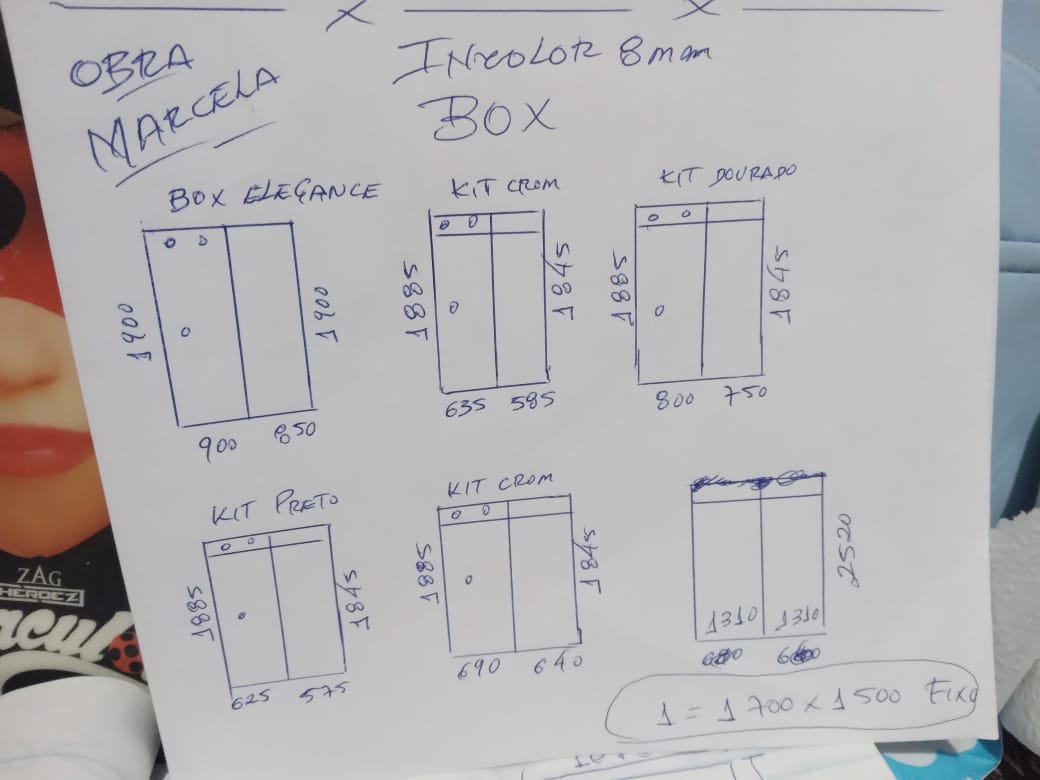 OBRA
MARCELA
INCOLOR 8mm
BOX
BOX ELEGANCE
1900
1900
900 850
KIT CROM
1885
1845
635 585
KIT DOURADO
1885
1845
800 750
KIT PRETO
1885
1845
625 575
KIT CROM
1885
1845
690 640
2520
1310 1310
1 = 1700 x 1500 FIXO
ZAG
HEROEZ